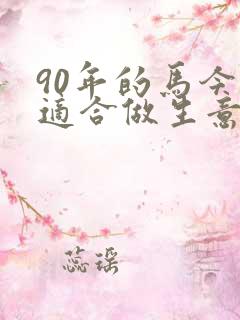 90年的馬今
適合做生意
蕊瑶